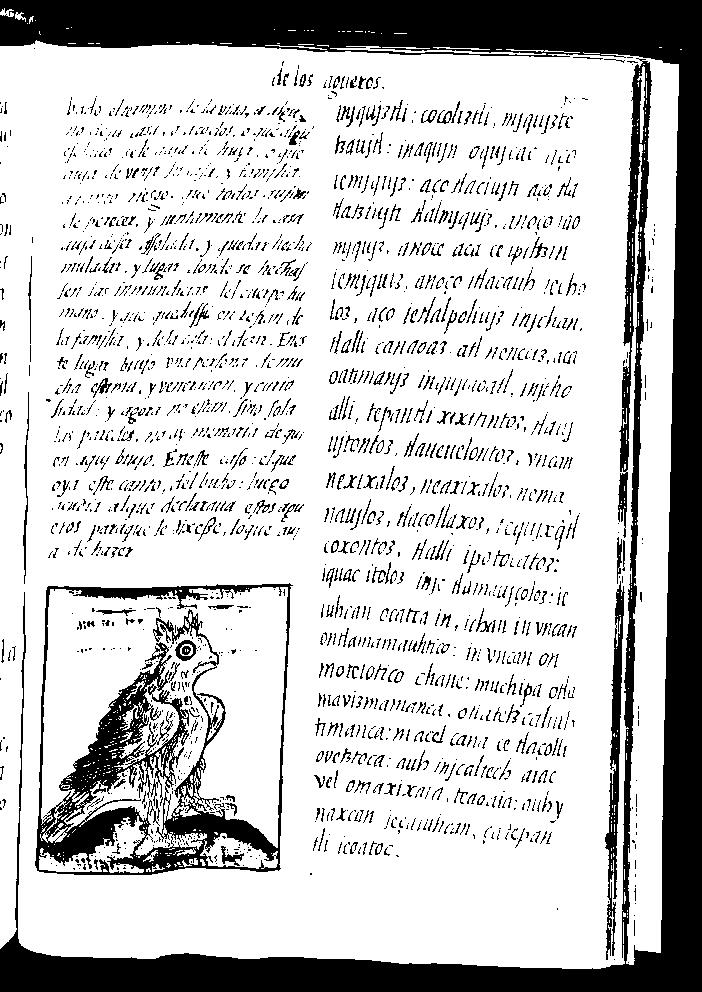 de los agueros.
bado el termino de la vida, a algu
no de su casa, o a todos, o que algun
esclauo se le auja de huyr, o que
auja de venjr su casa, y familia
a tanto riesgo, que todos aujan
de perecer, y iuntamente la casa
auja de ser assolada, y quedar hecha
muladar, y lugar donde se hechas
sen las inmundicias del cuerpo hu
mano. y que quedasse en refran de
la familia, y de la casa: el dezir. En es
te lugar biujo vna persona de mu
cha estima, y veneracion, y curio
sidad; y agora no estan, sino solas
las paredes, no ay memoria de qui
en aquj biujo. En este caso: el que
oya este canto, del buho: luego
acudia al que declaraua estos agu
eros paraque le dixesse, lo que auj
a de hazer
mjqujztli: cocoliztli, mjqujzte
tzaujtl: inaqujn oqujcac aço
iemjqujz: aço tlaciujti aço tla
tlatziujti tlalmjqujz, anoço iao
mjqujz, anoce aca ce ipiltzin
iemjqujz, anoço itlacauh iecho
loz, aço ietlalpoliujz injchan,
tlalli canaoaz. atl nenciz, aca
oatimanjz inqujiaoatl, injtho
alli, tepantli xixitintoz, tlauj
ujtentoz, tlaueuelontoz, vncan
nexixaloz, neaxixaloz, nema
naujloz, tlaçollaxoz, tequjxqujtl
coxontoz, tlalli ipotocatoz:
iquac itoloz injc tlamaujçoloz: ie
iuhcan ocatca in, ichan in vncan
ontlamamauhtico: in vncan on
motelotico chane: muchipa otla
mavizmamanca, otlatetzcaliuh
timanca: in acel cana ce tlaçolli
ovetztoca: auh injcaltech aiac
vel omaxixaia, teaoaia: auh y
naxcan ieçaiuhcan, çatepan
tli icoatoc.